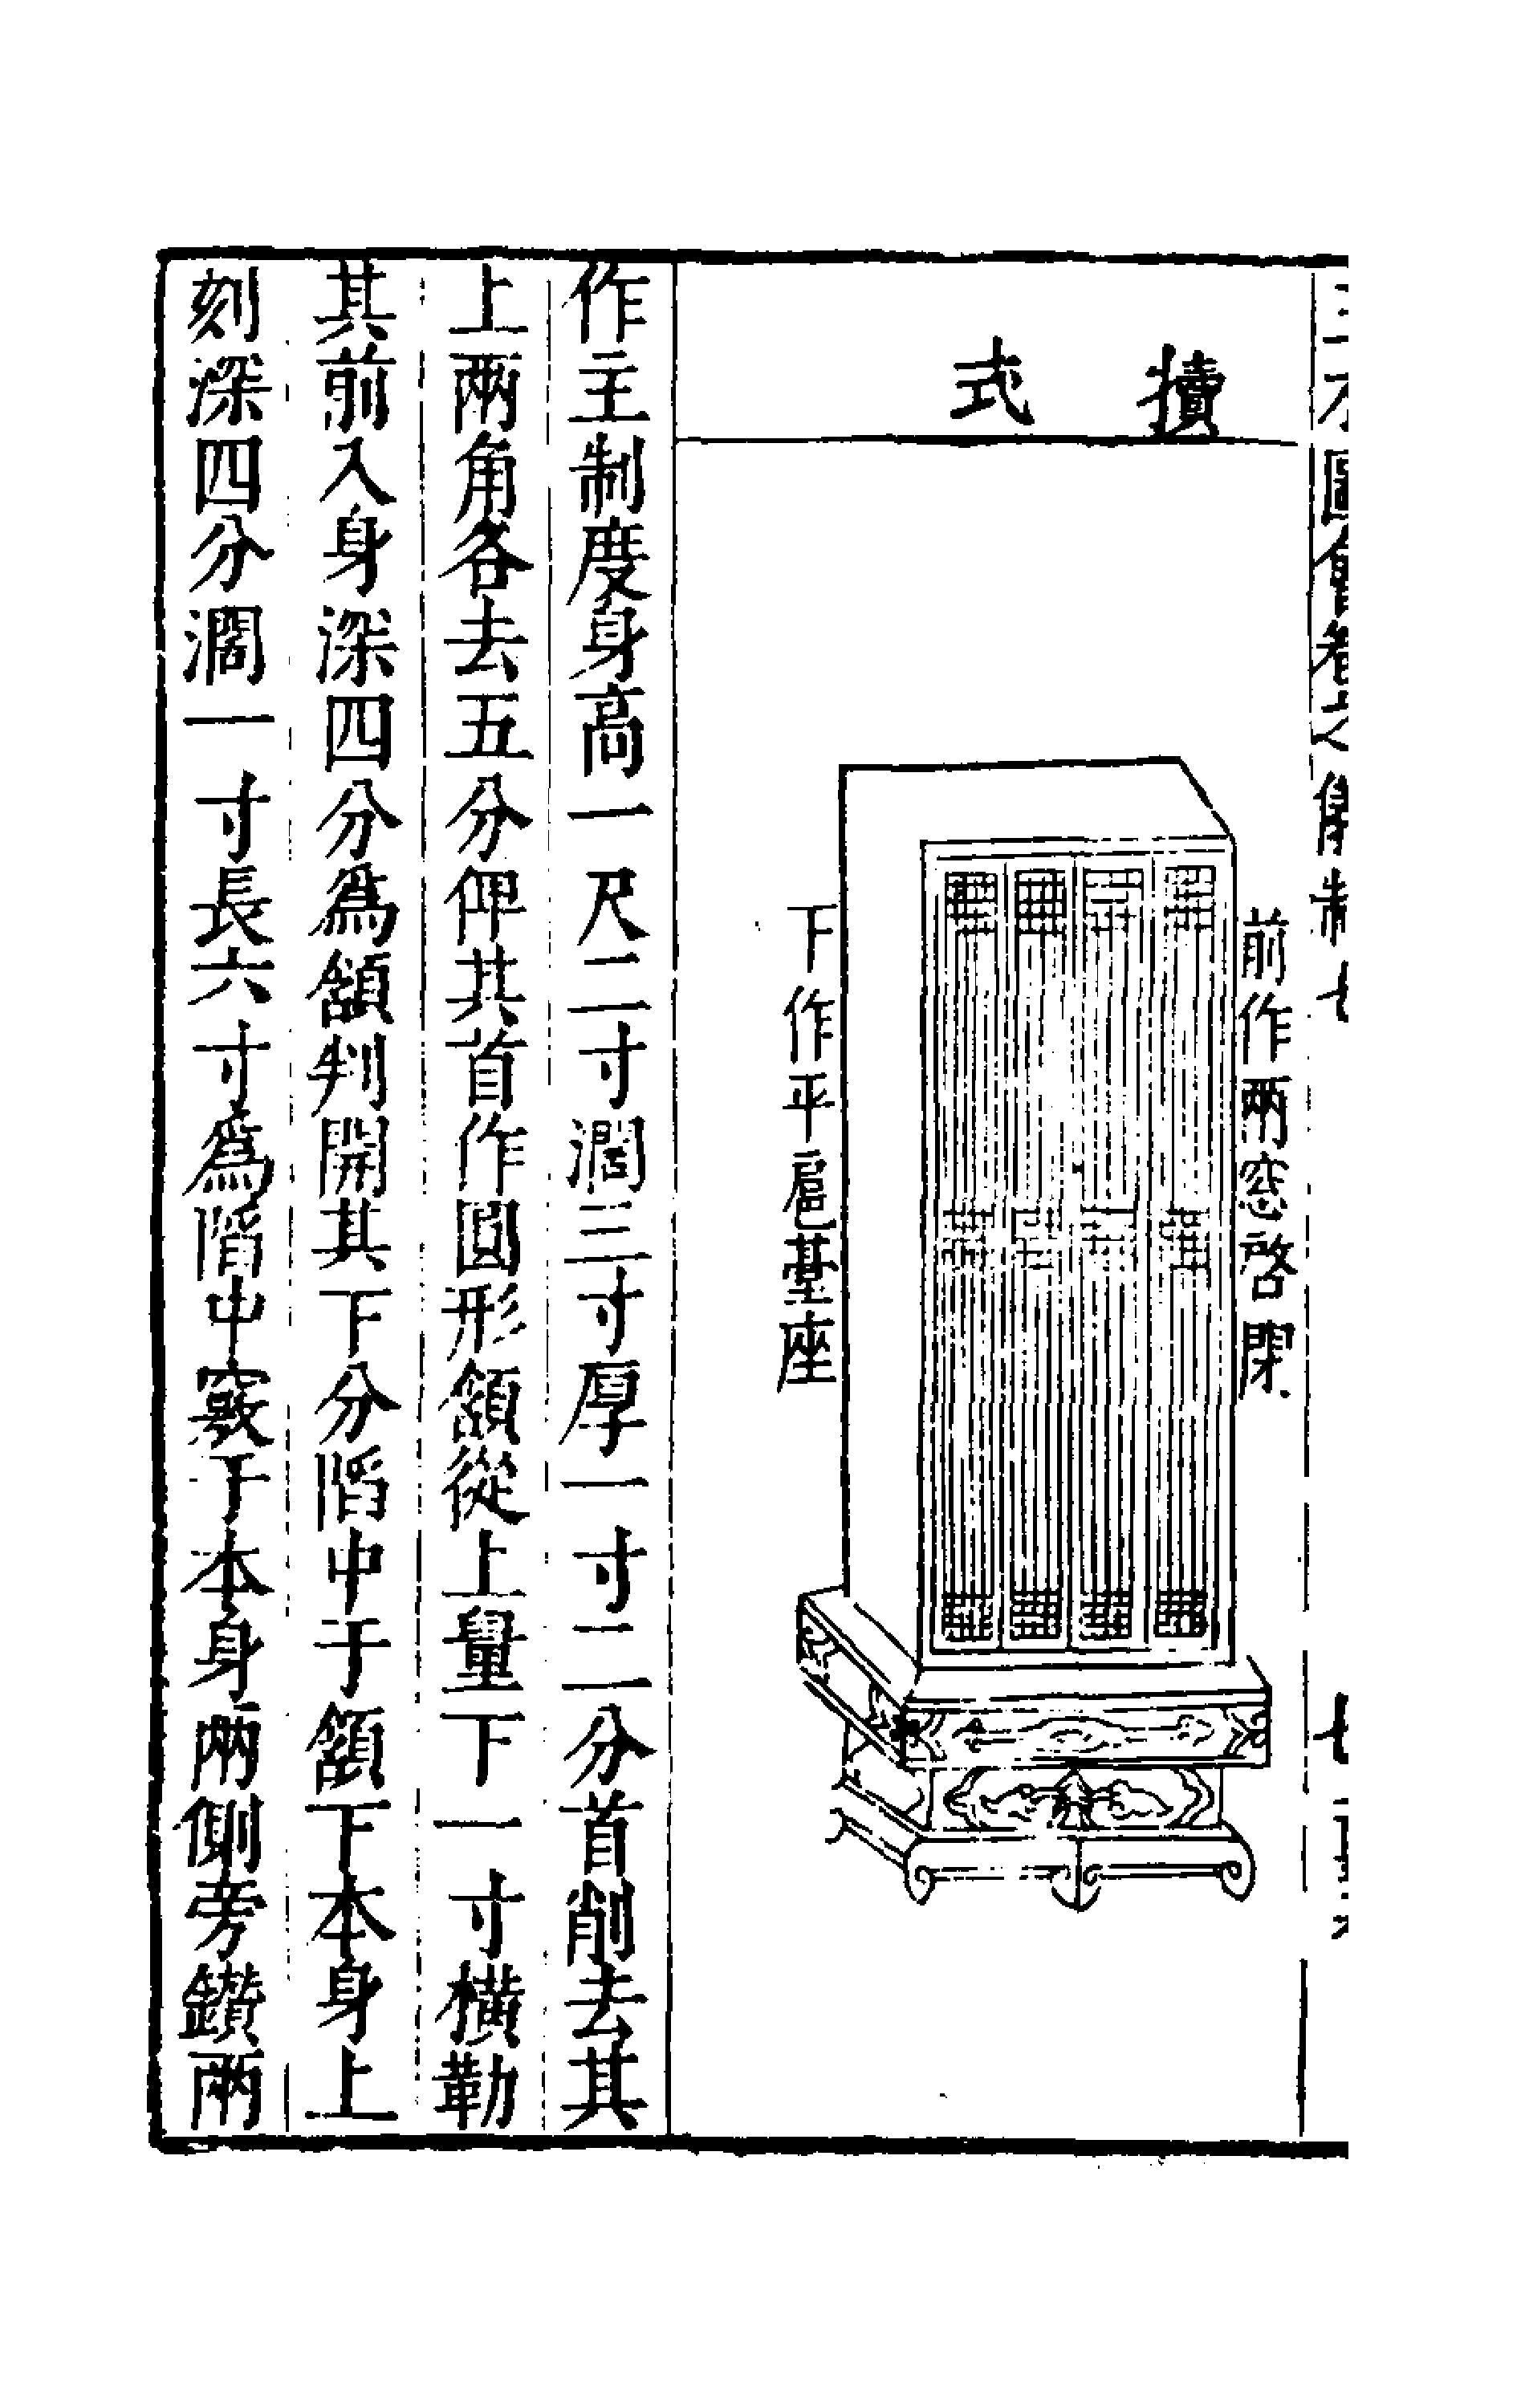 三才圖會卷之儀制七
櫝式
前作兩窓啓閉
下作平臺座
作主制度身高一尺二寸濶三寸厚一寸二分首削去其
上兩角各去五分俾其首作圓形額從上量下一寸橫勒
其前入身深四分爲額判開其下分䧟中于額下本身上
刻深四分濶一寸長六寸爲䧟中竅于本身兩側旁鑚兩